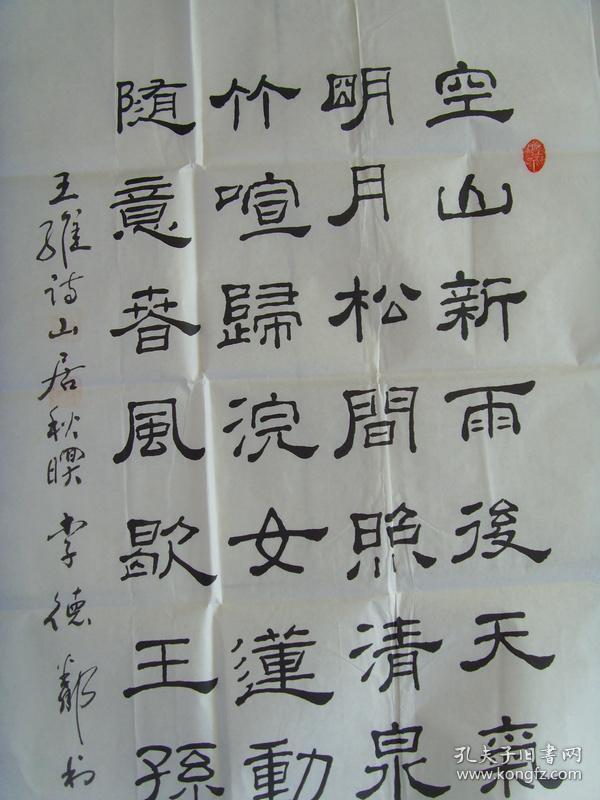 空山新雨後天氣
明月松間照清泉
竹喧歸浣女蓮動
隨意春風歇王孫
王維詩山居秋暝 李德鄰 书
孔夫子旧书网
www.kongfz.com